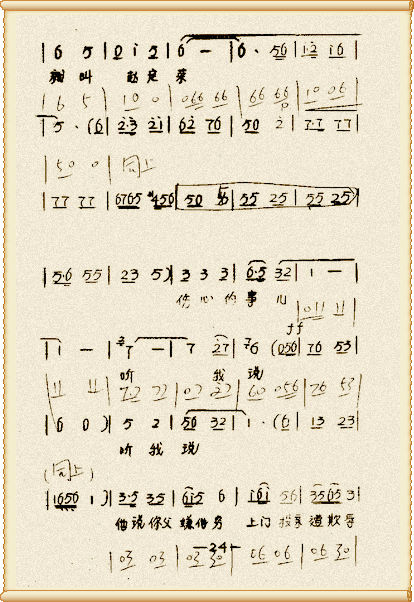 | 6 5 | 2 i 2 | 6 — | 6 · 56 | i·2 i6 |
| 6 5 | 10 0 | 066 66 | 66 66 | 10 06 |
5 · (6 | 2·3 21 | 62 76 | 50 2 | 7·7 77 |
| 50 0 | 同上
| 77 77 | 6765 #456 | 50 | 55 25 | 55 25 |
| 5·6 55 | 23 5) | 3 3 3 | 6·5 32 | 1 — |
伤 心 的 事 儿
| 011 11 |
ff
| 1 — | 7 — | 7 27 | 6 (056 | 76 53 |
听 我 说
| 11 11 | 22 22 | 02 22 | 60 056 | 76 53 |
| 6 0) | 5 2 | 56 32 | 1 · (6 | 13 23 |
听 我 说
(同上)
| 1656 1) | 3·5 35 | 6i5 6 | i6i 56 | 3565 3 |
借 说 你 父 嫌 借 穷 上 门 道 欺 辱
| 03 03 | 03 30 | 06 06 | 06 30 |
— 34 —